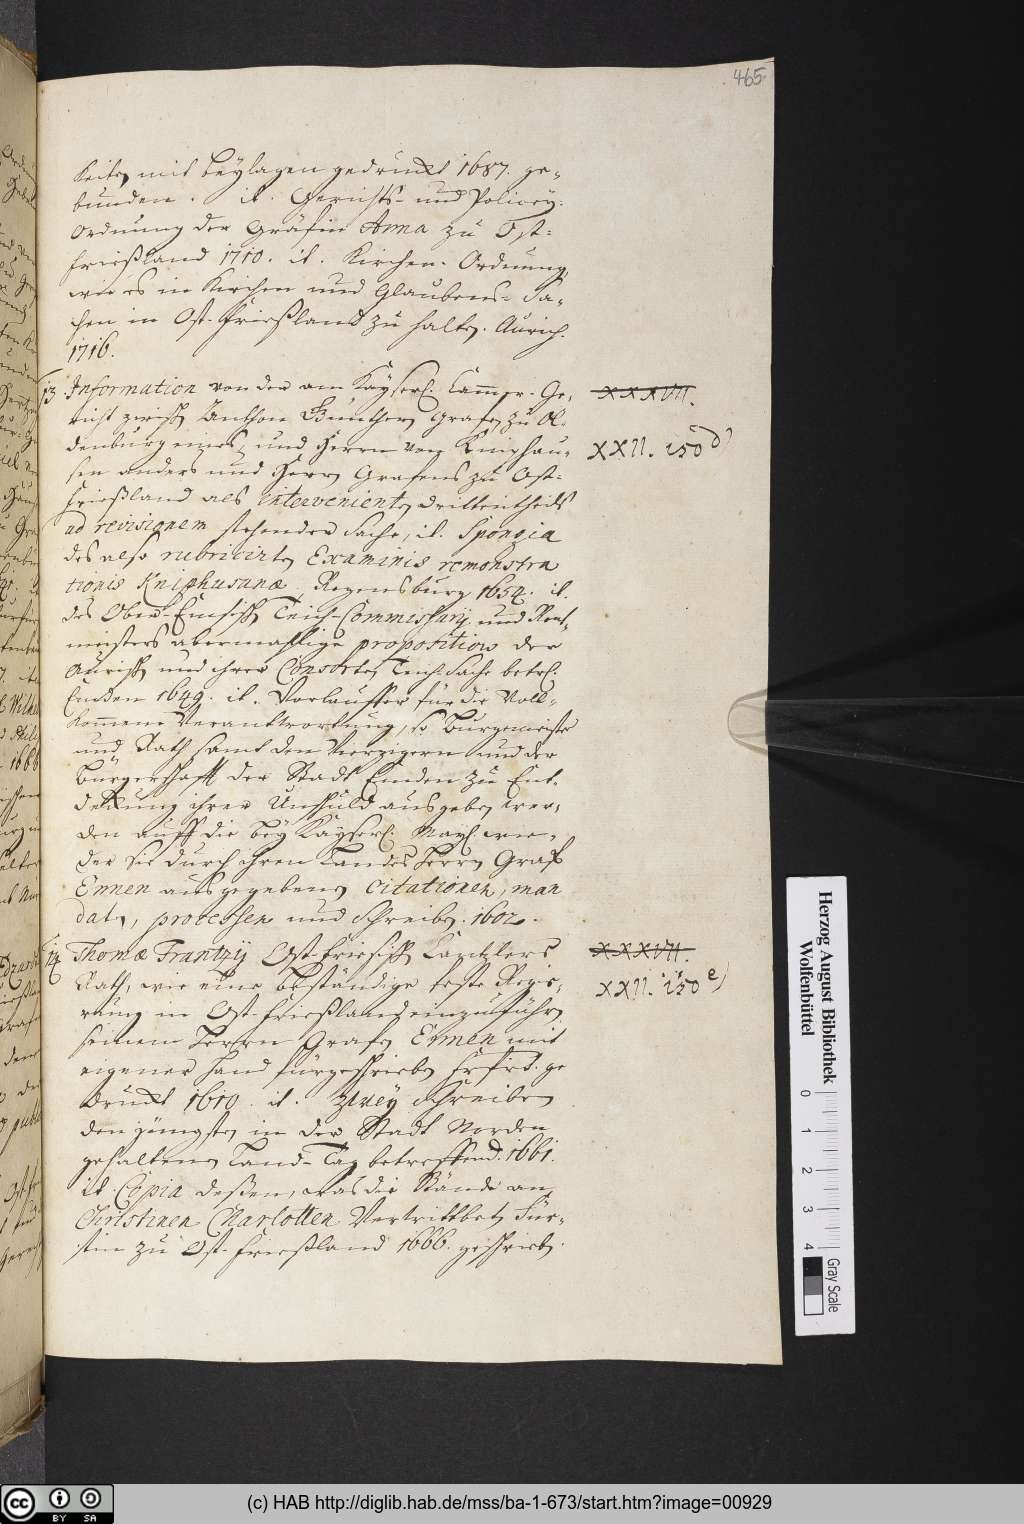 465
keiten mit Beylagen gedruckt 1687. ge-
bunden. it. Gerichts- und Policey-
Ordnung der Gräfin Anna zu Ost-
frießland 1710. it. Kirchen-Ordnung,
wie es in Kirchen und Glaubens-Sa-
chen in Ost-Frießland zu halten. Aurich.
1716.
13 Information von der am Kayserl. Cammer-Ge- XXXVII.
richt zwisch Anthon Günthern Grafen zu Ol-
denburg eines, und Herrn von Kniphau- XXII. 150 d)
sen anders und Herrn Grafens zu Ost-
Frießland als intervenienten drittentheils
ad revisionem stehender Sache, it. Spongia
des also rubricirten Examinis remonstra
tionis Kniphusanæ, Regensburg 1654. it.
des Ober-Emsisch Teich-Commissarij und Rent-
meisters abermahlige proposition der
Aurisch und ihrer Consorten Teich-Sache betrl.
Emden 1649. it. Vorlauffer für die Voll-
kommene Verantwortung, so Burgemeister
und Rath samt den Vierzigern und der
Bürgerschafft der Stadt Emden zu Ent-
deckung ihrer Unschuld ausgeben wer-
den auff die bey Kayserl. Mayt. wie-
der sie durch ihren Landes Herrn Graf
Ennen ausgegebenen citationen, man
daten, processen und Schreiben. 1602.
14 Thomæ Frantzij Ost-Friesisch Cantzlers XXXVII.
Rath, wie eine beständige feste Regie- XXII. 150 e)
rung in Ost-Frießland einzuführen
seinem Herrn Grafen Ennen mit
eigener Hand fürgeschrieben ge
druckt 1610. it. Zwey Schreiben
den jüngsten in der Stadt Norden
gehaltenen Land-Tag betreffend. 1661.
it. Copia deßen, was die Stände an
Christinen Charlotten Verwittbete Für-
stin zu Ost-Frießland 1666. geschrieben.
Herzog August Bibliothek
Wolfenbüttel
0 1 2 3 4
Gray Scale
CC BY SA
(c) HAB http://diglib.hab.de/mss/ba-1-673/start.htm?image=00929